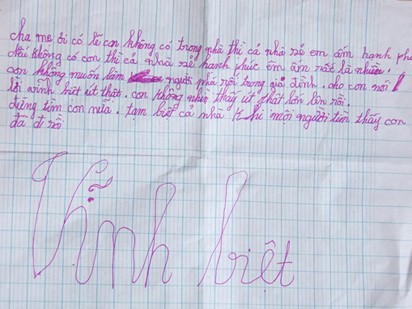 cha mẹ ơi có lẽ con không có trong nhà thì cả nhà rẻ em ấm hạnh ph
khi không có con thì cả nhà rẻ hạnh phúc êm ấm rất là nhiều.
con không muốn làm người phá rối trong gia đình. cho con nói 1
lời vĩnh biệt út thật. con không nhìn thấy út thật lớn lên rồi.
đừng tìm con nữa. tạm biệt cả nhà khi mọi người tìm thấy con
đã đi rồi
Vĩnh biệt